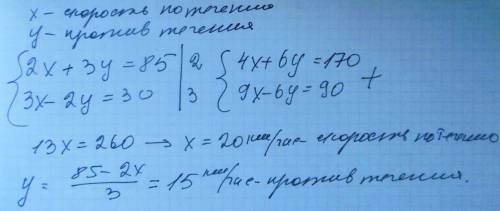 x - скорость по течению
y - против течения
{2x + 3y = 85 | 2 {4x + 6y = 170
{3x - 2y = 30 | 3 {9x - 6y = 90 +
13x = 260 → x = 20 км/час - скорость по течению
y = (85 - 2x)/3 = 15 км/час - против течения.